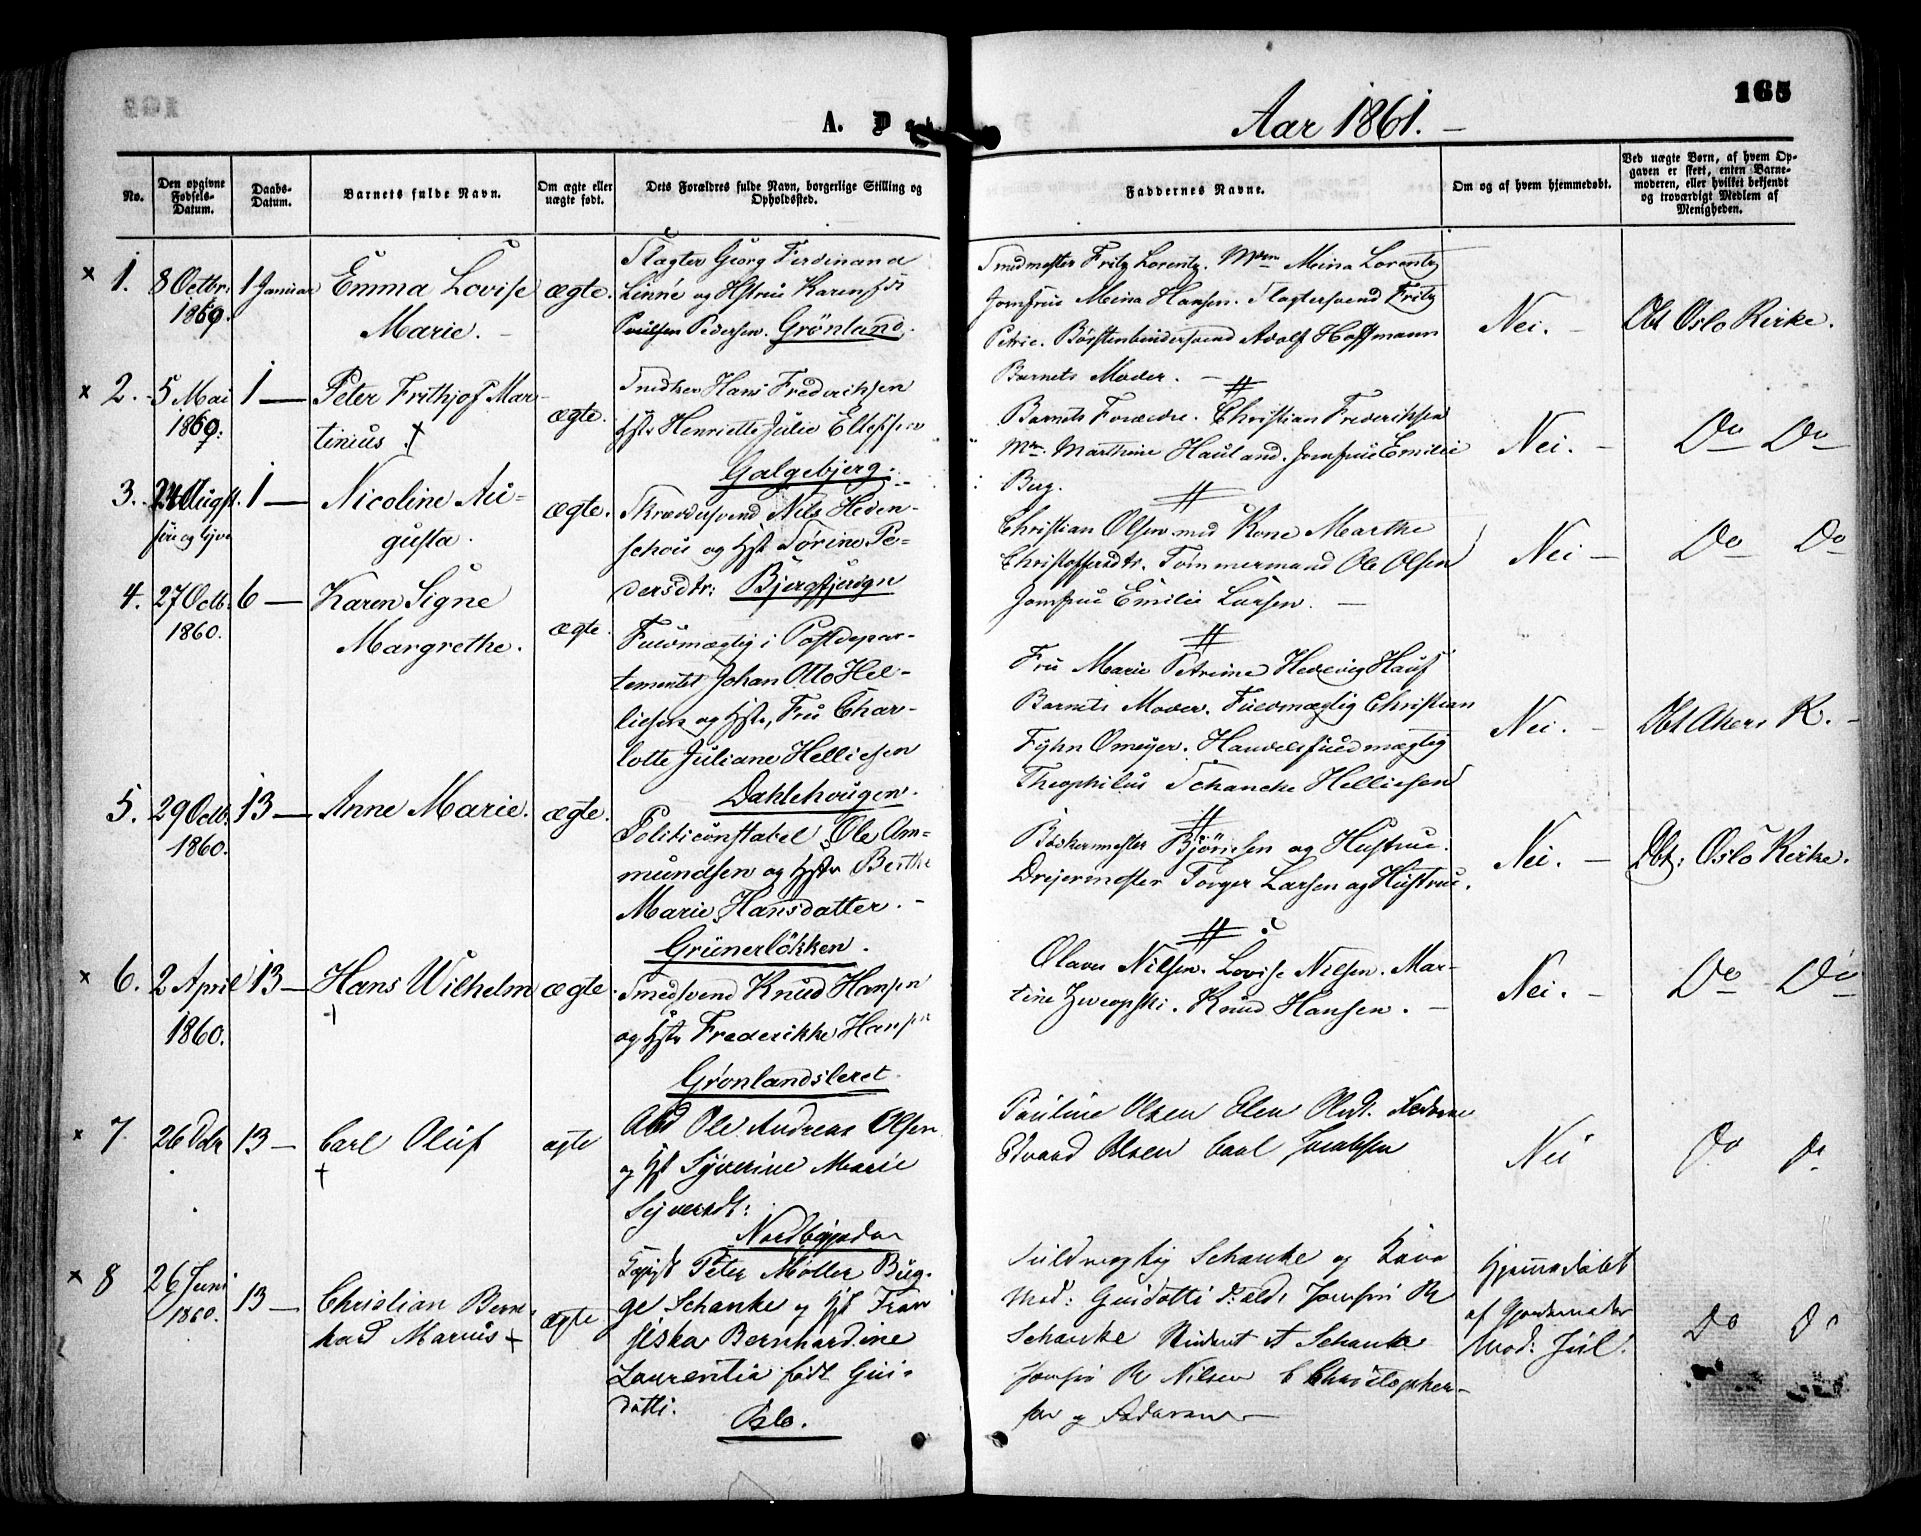 165
A. D
Aar 1861.
No.
Den opgivne Fødsels-Datum.
Daabs-Datum.
Barnets fulde Navn.
Om ægte eller uægte født.
Dets Forældres fulde Navn, borgerlige Stilling og Opholdssted.
Faddernes Navne.
Om og af hvem hjemmedøbt.
Ved uægte Børn, af hvem Opgaven er skeet, enten Barnemoderen, eller hvilket bekjendt og troværdigt Medlem af Menigheden.
× 1.
8 Octbr.
1860.
1 Januar
Emma Lovise
Marie.
ægte.
Slagter Georg Ferdinand
Linné og Hstru Karen
Poulsen Pedersen. Grönland.
Smedmester Fritz Lorentz. Mdm Meina Lorentz
Jomfrue Meina Hansen. Slagtersvend Fritz
Petrie. Börstenbindersvend Adolf Hoffmann
Barnets Moder.
Nei.
Dbt Oslo Kirke.
× 2.
5 Mai
1860.
1
Peter Frithjof Mar-
tinius +
ægte.
Snedker Hans Frederiksen
Hstr Henriette Julie Ellefsen
Galgebjerg.
Barnets Forældre. Christian Frederiksen
Mdm. Marthine Hauland. Jomfrue Emilie
Berg.
Nei.
Do Do
3.
24 Augst.
1
Nicoline Au-
gusta.
ægte.
Skræddersvend Nils Heden-
schou og Hst Torine Pe-
dersdtr: Bjergfjerdgn
Christian Olsen med Kone Marthe
Christoffersdtr. Tømmermand Ole Olsen
Jomfrue Emilie Larsen.
Nei
Do Do
4.
27 Octb.
1860.
6
Karen Signe
Margrethe.
ægte.
Fuldmægtig i Postdepar-
tementet Johan Otto Hel-
liesen og Hstr, Fru Char-
lotte Juliane Helliesen
Dahlehougen.
Fru Marie Petrine Hedevig Hauf
Barnets Moder. Fuldmægtig Christian
Fyhn Omeyer. Handelsfuldmægtig
Theophilus Schancke Helliesen
Nei.
Dbt Akers K.
5.
29 Octb.
1860.
13
Anne Marie.
ægte.
Politiconstabel Ole Am-
mundsen og Hstr Berthe
Marie Hansdatter.
Grünerlökken.
Bødkermester Bjørnsen og Hustrue.
Dreiermester Torger Larsen og Hustrue.
Nei.
Dbt: Oslo Kirke.
× 6.
2 April
1860.
13
Hans Wilhelm
+
ægte
Smedsvend Knud Hansen
og Hstr Frederikke Hansen
Grønlandsleret.
Olaves Nilsen. Lovise Nilsen. Mar-
tine Knud Hansen.
Nei.
Do Do
× 7
26 Octr
13
Carl Oluf
+
ægte
Abd Ole Andreas Olsen
og Hst Syverine Marie
Syversdt:
Nordbygaden
Pauline Olsen Elen Olsdt.
Edvard Olsen Carl Jacobsen
Nei
Do Do
× 8
26 Juni
1860.
13
Christian Bern-
hard Marius +
ægte
Peter Møller Büg-
ge Schanke og Hst Fran
siska Bernhardine
Laurentia født Gui-
dotti.
Oslo.
Fuldmægtig Schanke og
Mad: Guidotti Jomfru R
Schanke Student A Schanke
Jomfru R Nilsen C Christopher-
sen og Faderen
Hjemmedøbt
af Gjordemoder
Mad: Juul.
Do Do